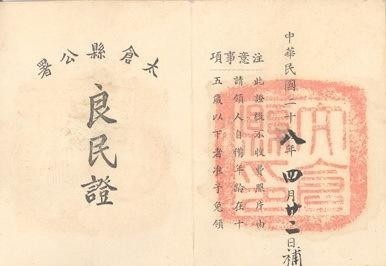 太倉縣公署
良民證
中華民國二十八年四月廿二日補
注意事項
此證概不收費照片由
請領人自備年齡在十
五歲以下者准予免領